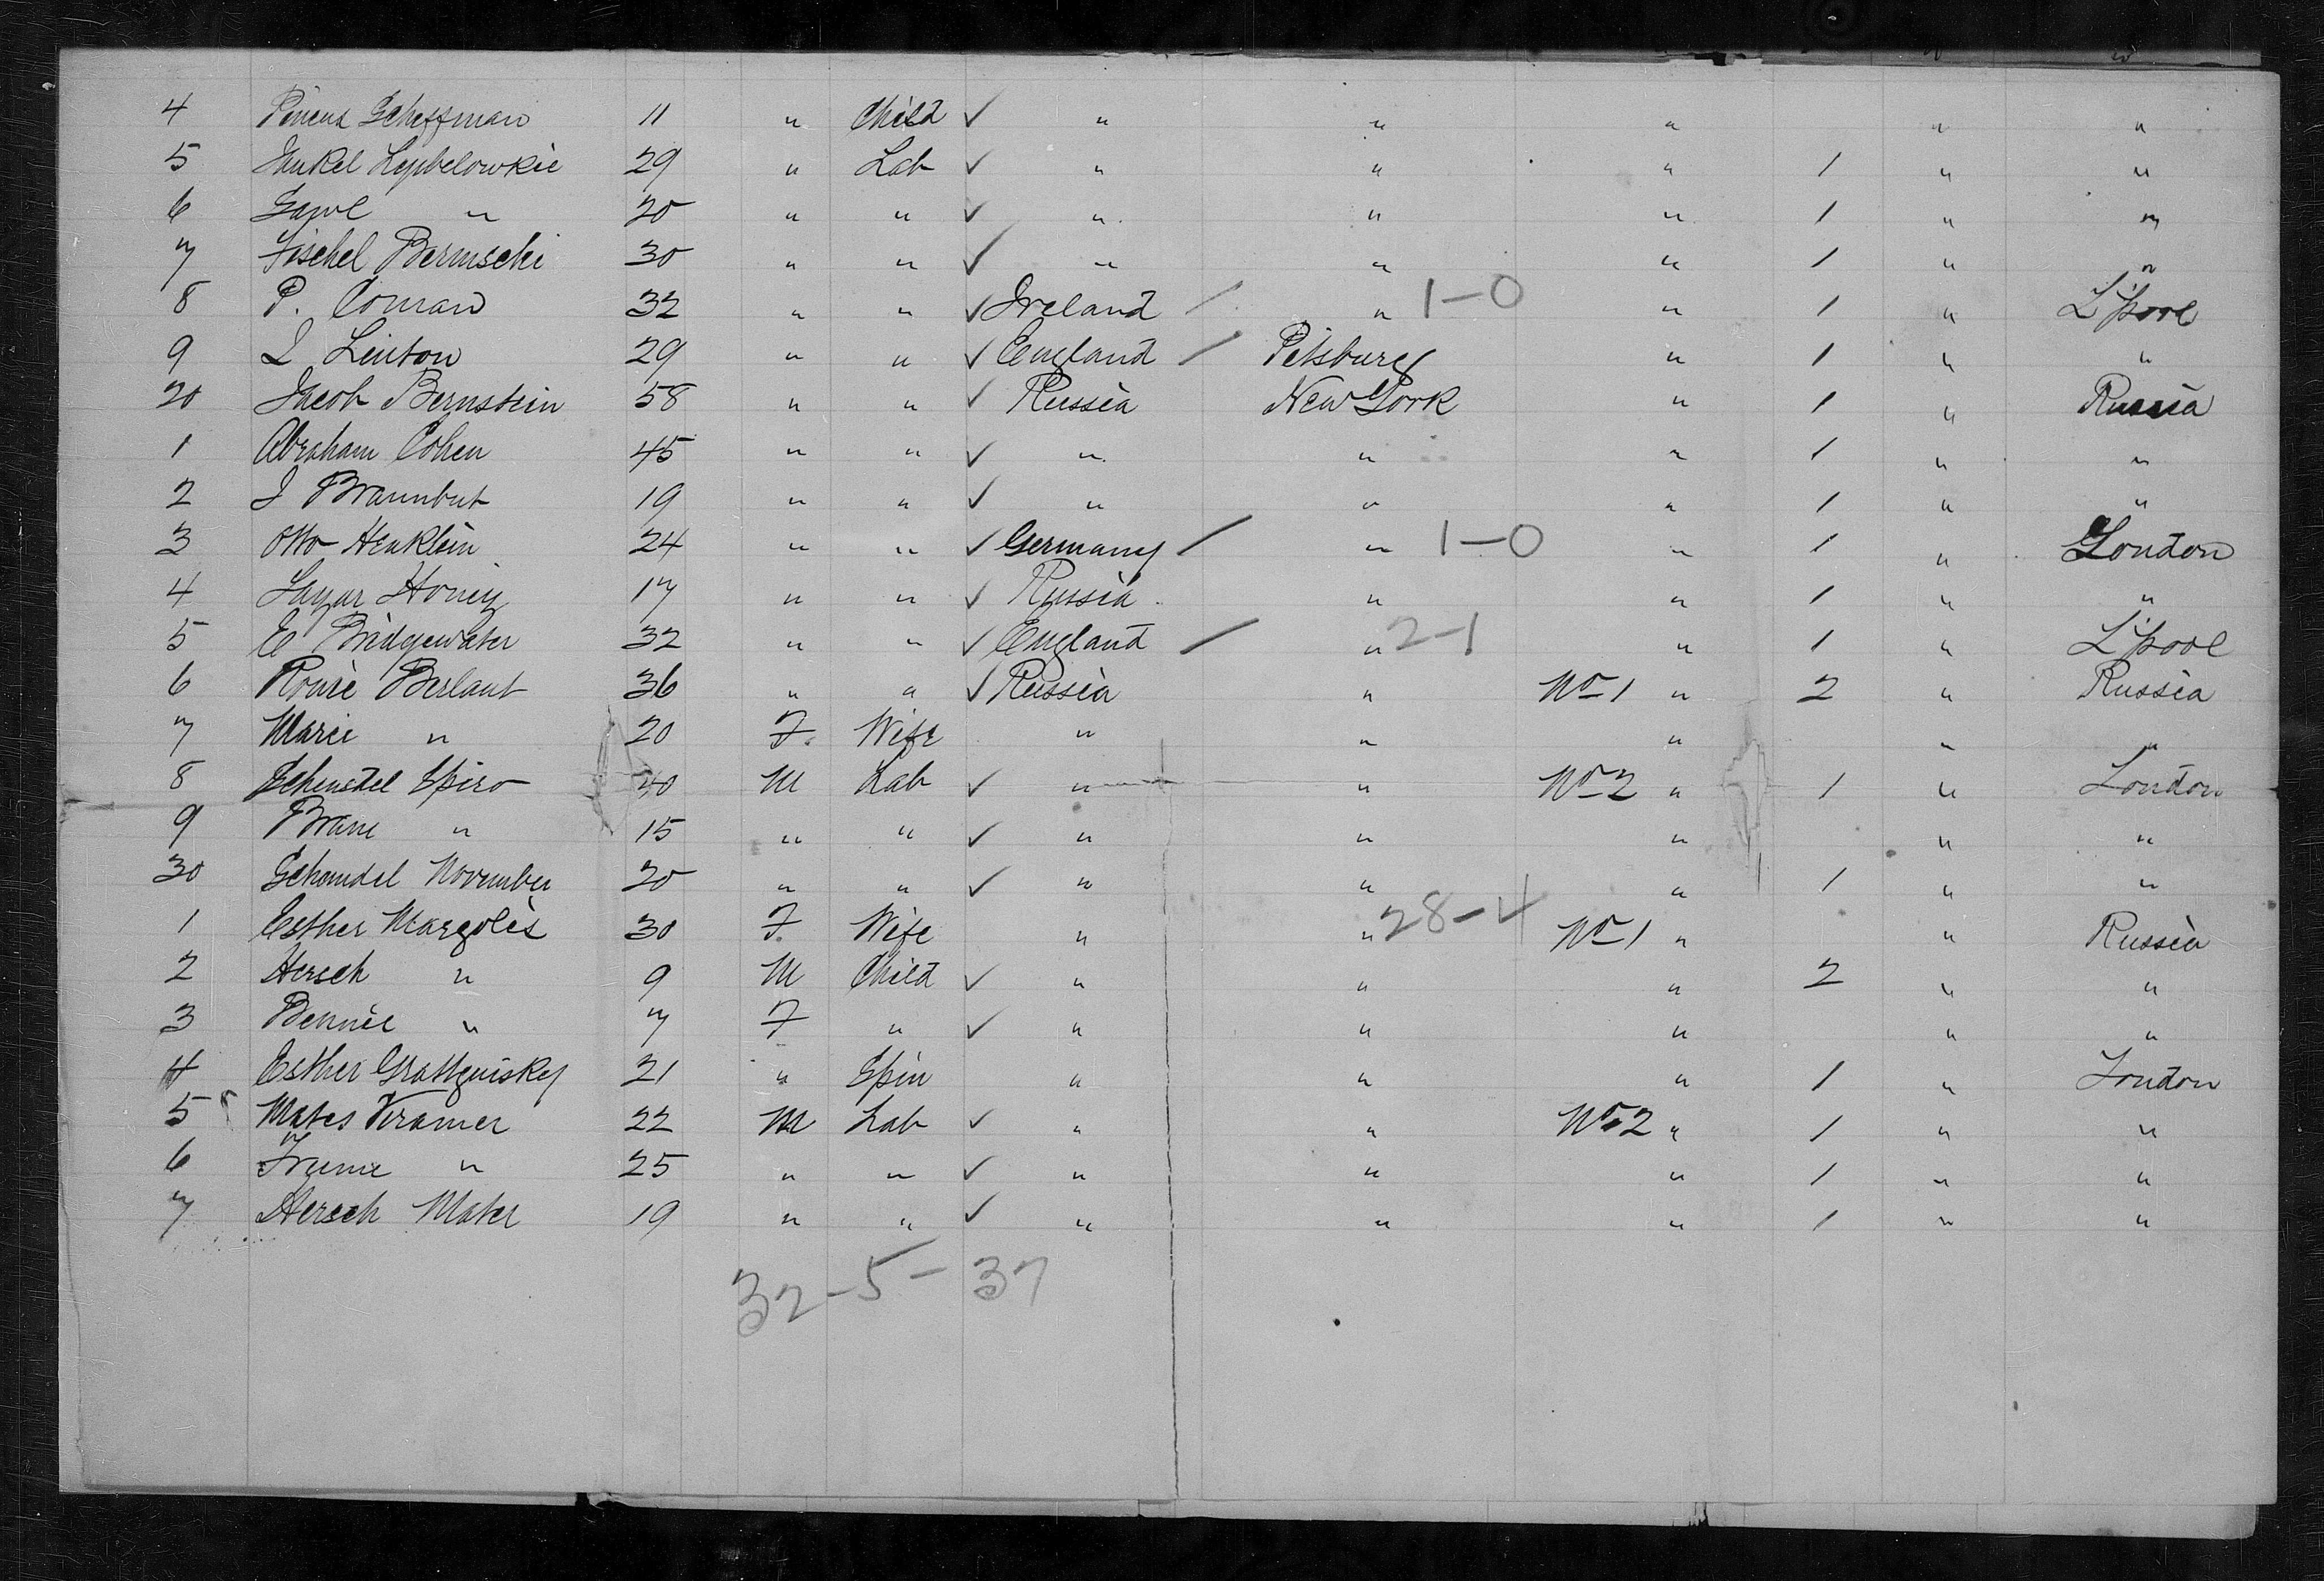 4 Pincus Scheffman 11 " Child ✓ " " " " "
5 Jankel Leybelowkie 29 " Lab ✓ " " " 1 " "
6 Sawl " 20 " " ✓ " " " 1 " "
7 Fischel Bermschi 30 " " ✓ " " " 1 " "
8 P. Conran 32 " " ✓ Ireland / " 1-0 " 1 " L'pool
9 J Linton 29 " " ✓ England / Pitsburg " 1 " "
20 Jacob Bernstein 58 " " ✓ Russia New York " 1 " Russia
1 Abraham Cohen 45 " " ✓ " " " 1 " "
2 J Braunbut 19 " " ✓ " " " 1 " "
3 Otto Henklein 24 " " ✓ Germany / " 1-0 " 1 " London
4 Layar Honig 17 " " ✓ Russia " " 1 " "
5 E Bridgewater 32 " " ✓ England / " 2-1 " 1 " L'pool
6 Berlant 36 " " ✓ Russia " No 1 " 2 " Russia
7 Marie " 20 F. Wife " " " " "
8 Spiro 40 M Lab ✓ " " No 2 " 1 " London
9 " 15 " " ✓ " " " " "
30 Schendel November 20 " " ✓ " " " 1 " "
1 Esther Margolis 30 F. Wife " " 28-4 No 1 " " Russia
2 Hersch " 9 M Child ✓ " " " 2 " "
3 Bennie " 7 F " ✓ " " " " "
4 Esther 21 " Spin " " " 1 " London
5 Mates Kramer 22 M Lab ✓ " " No 2 " 1 " "
6 Frume " 25 " " ✓ " " " 1 " "
7 Hersch Mater 19 " " ✓ " " " 1 " "
32-5-37